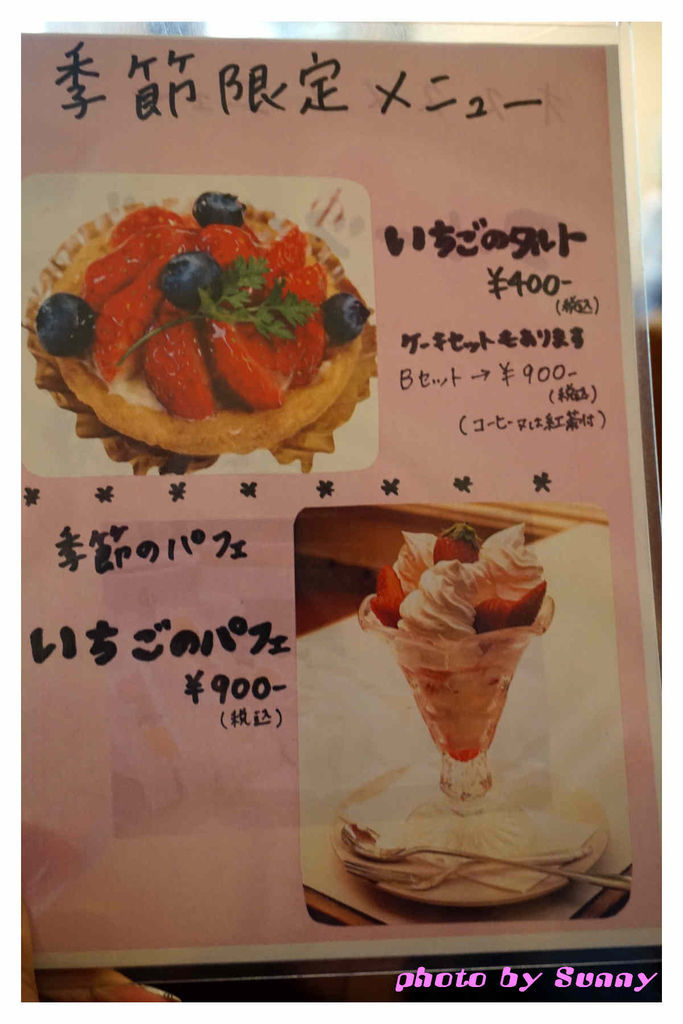 季節限定メニュー
いちごのタルト
¥400-
(税込)
ケーキセットもあります
Bセット→¥900-
(税込)
(コーヒー又は紅茶付)
* * * * * * * *
季節のパフェ
いちごのパフェ
¥900-
(税込)
photo by Sunny